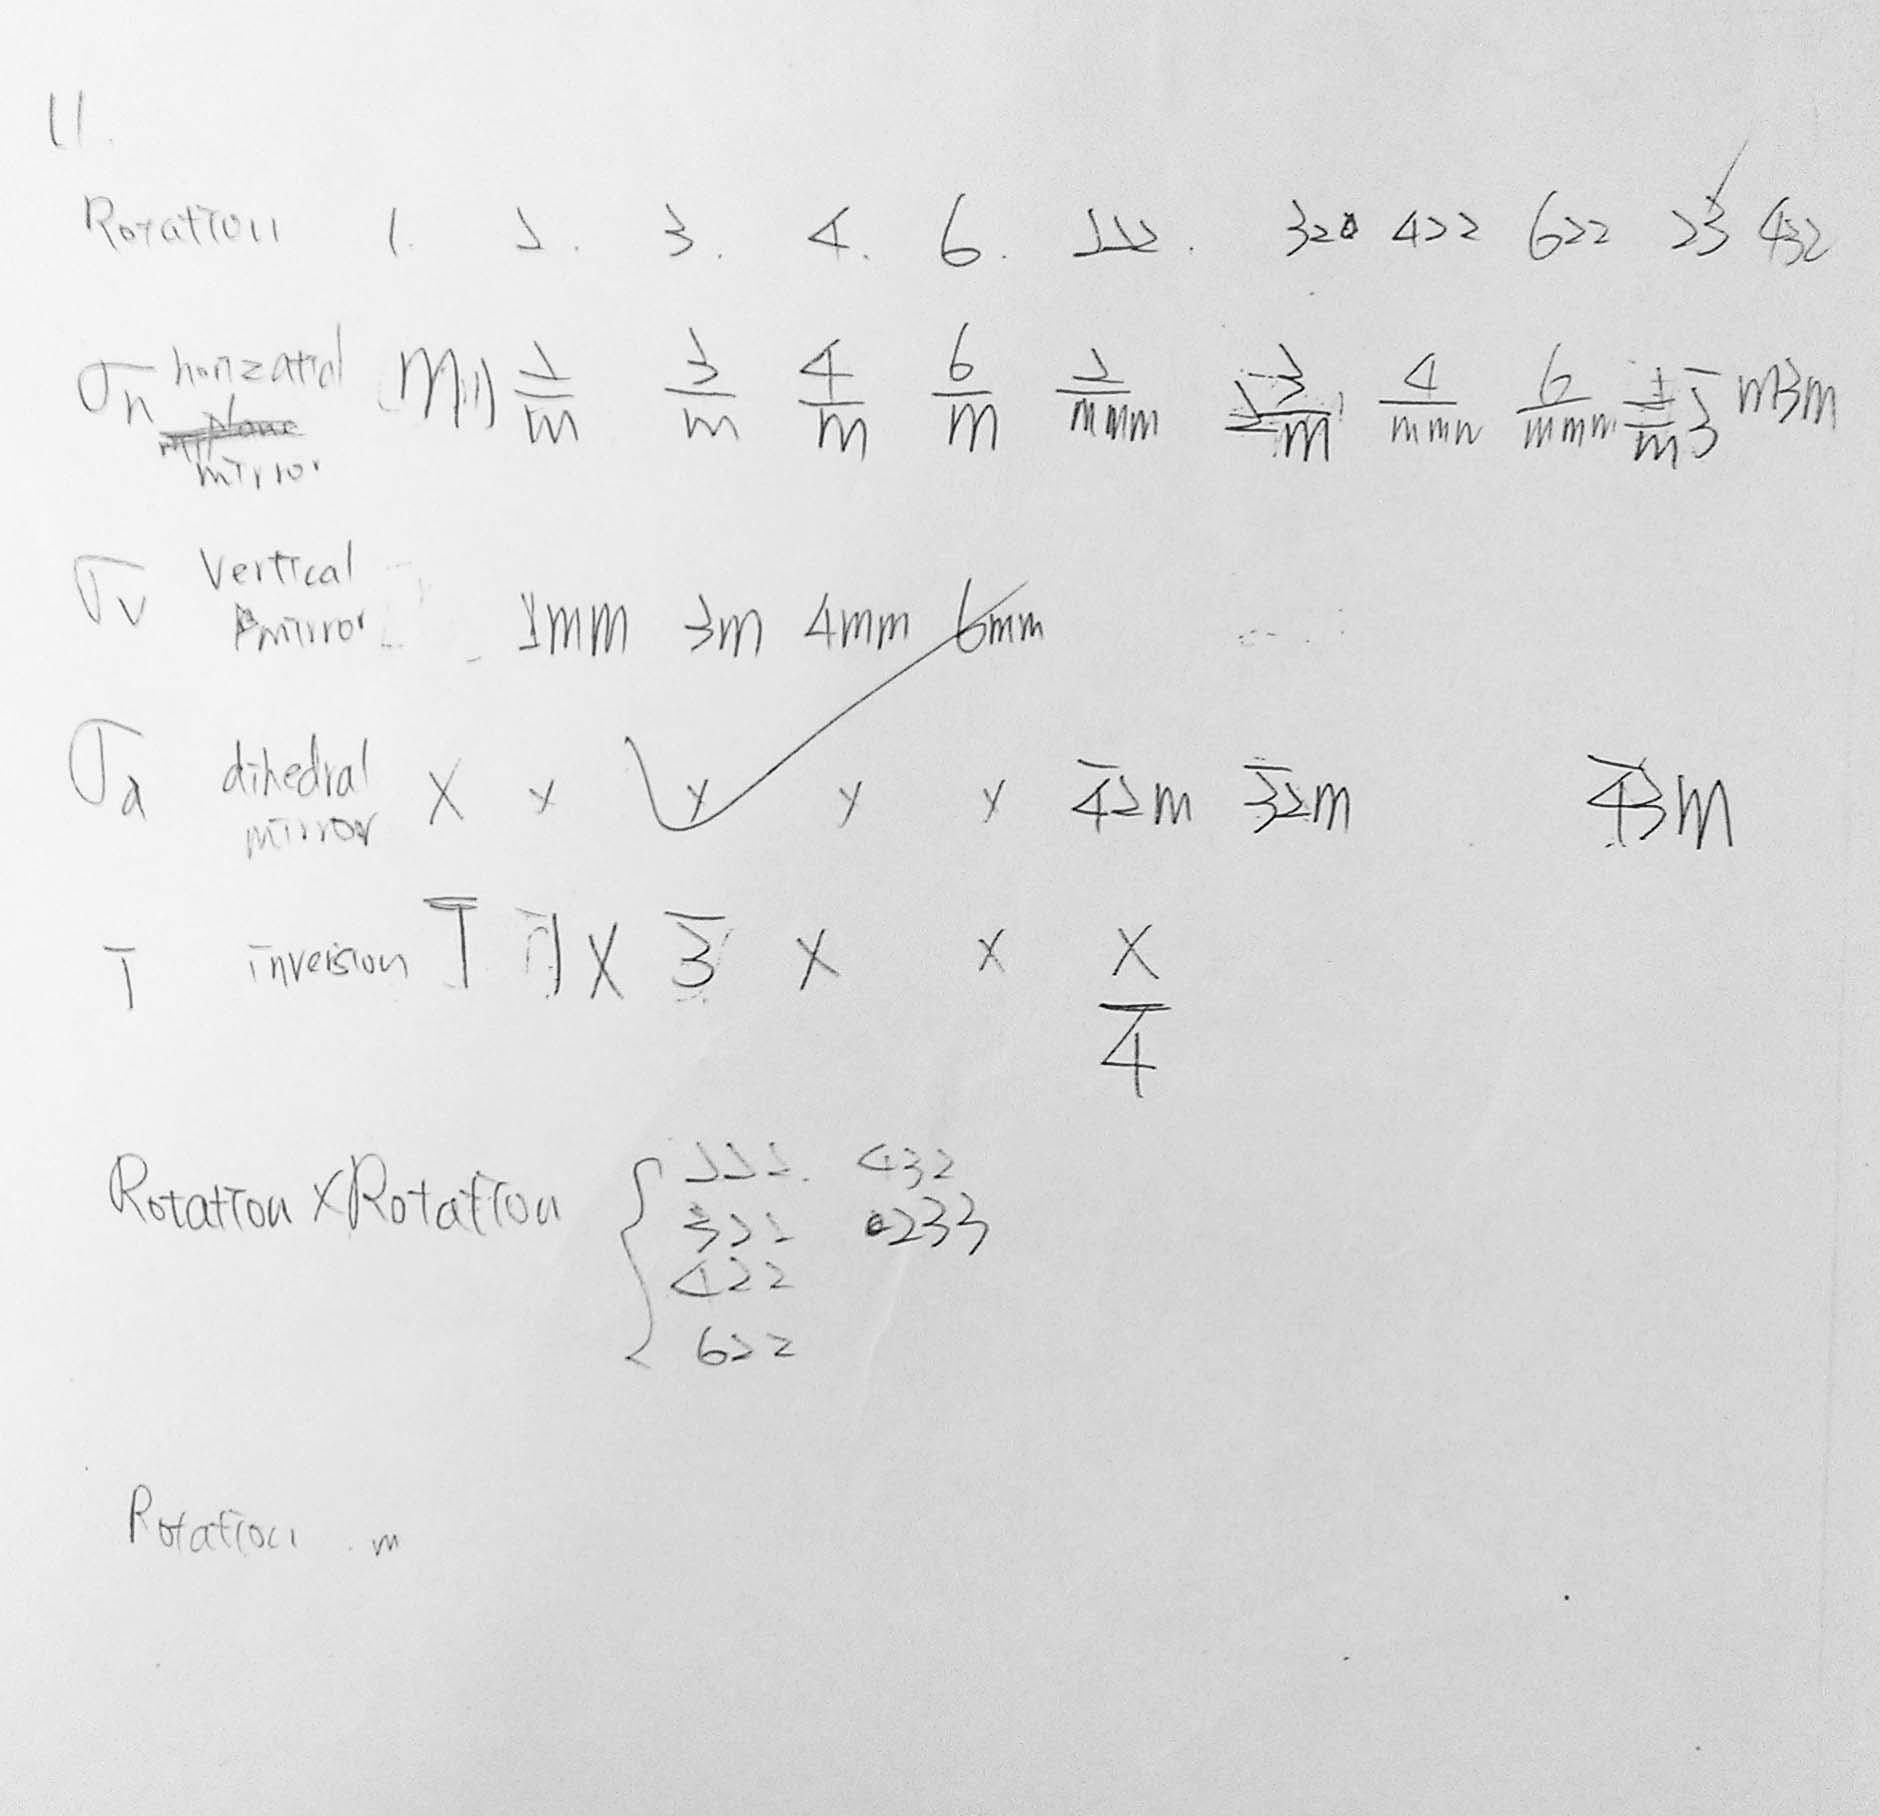 11.
Rotation 1. 2. 3. 4. 6. 222. 320 422 622 23 432
σh horizatial m(1) 2/m 3/m 4/m 6/m 2/mmm 3/m 4/mmm 6/mmm 2/m 3̅ m3m
mirror
σv Vertical
mirror 2mm 3m 4mm 6mm
σd dihedral X x x x x 4̅2m 3̅2m 4̅3m
mirror
1̅ inversion 1̅ X 3̅ X X X
4̅
Rotation X Rotation { 222. 432
322 233
422
622
Rotation . m